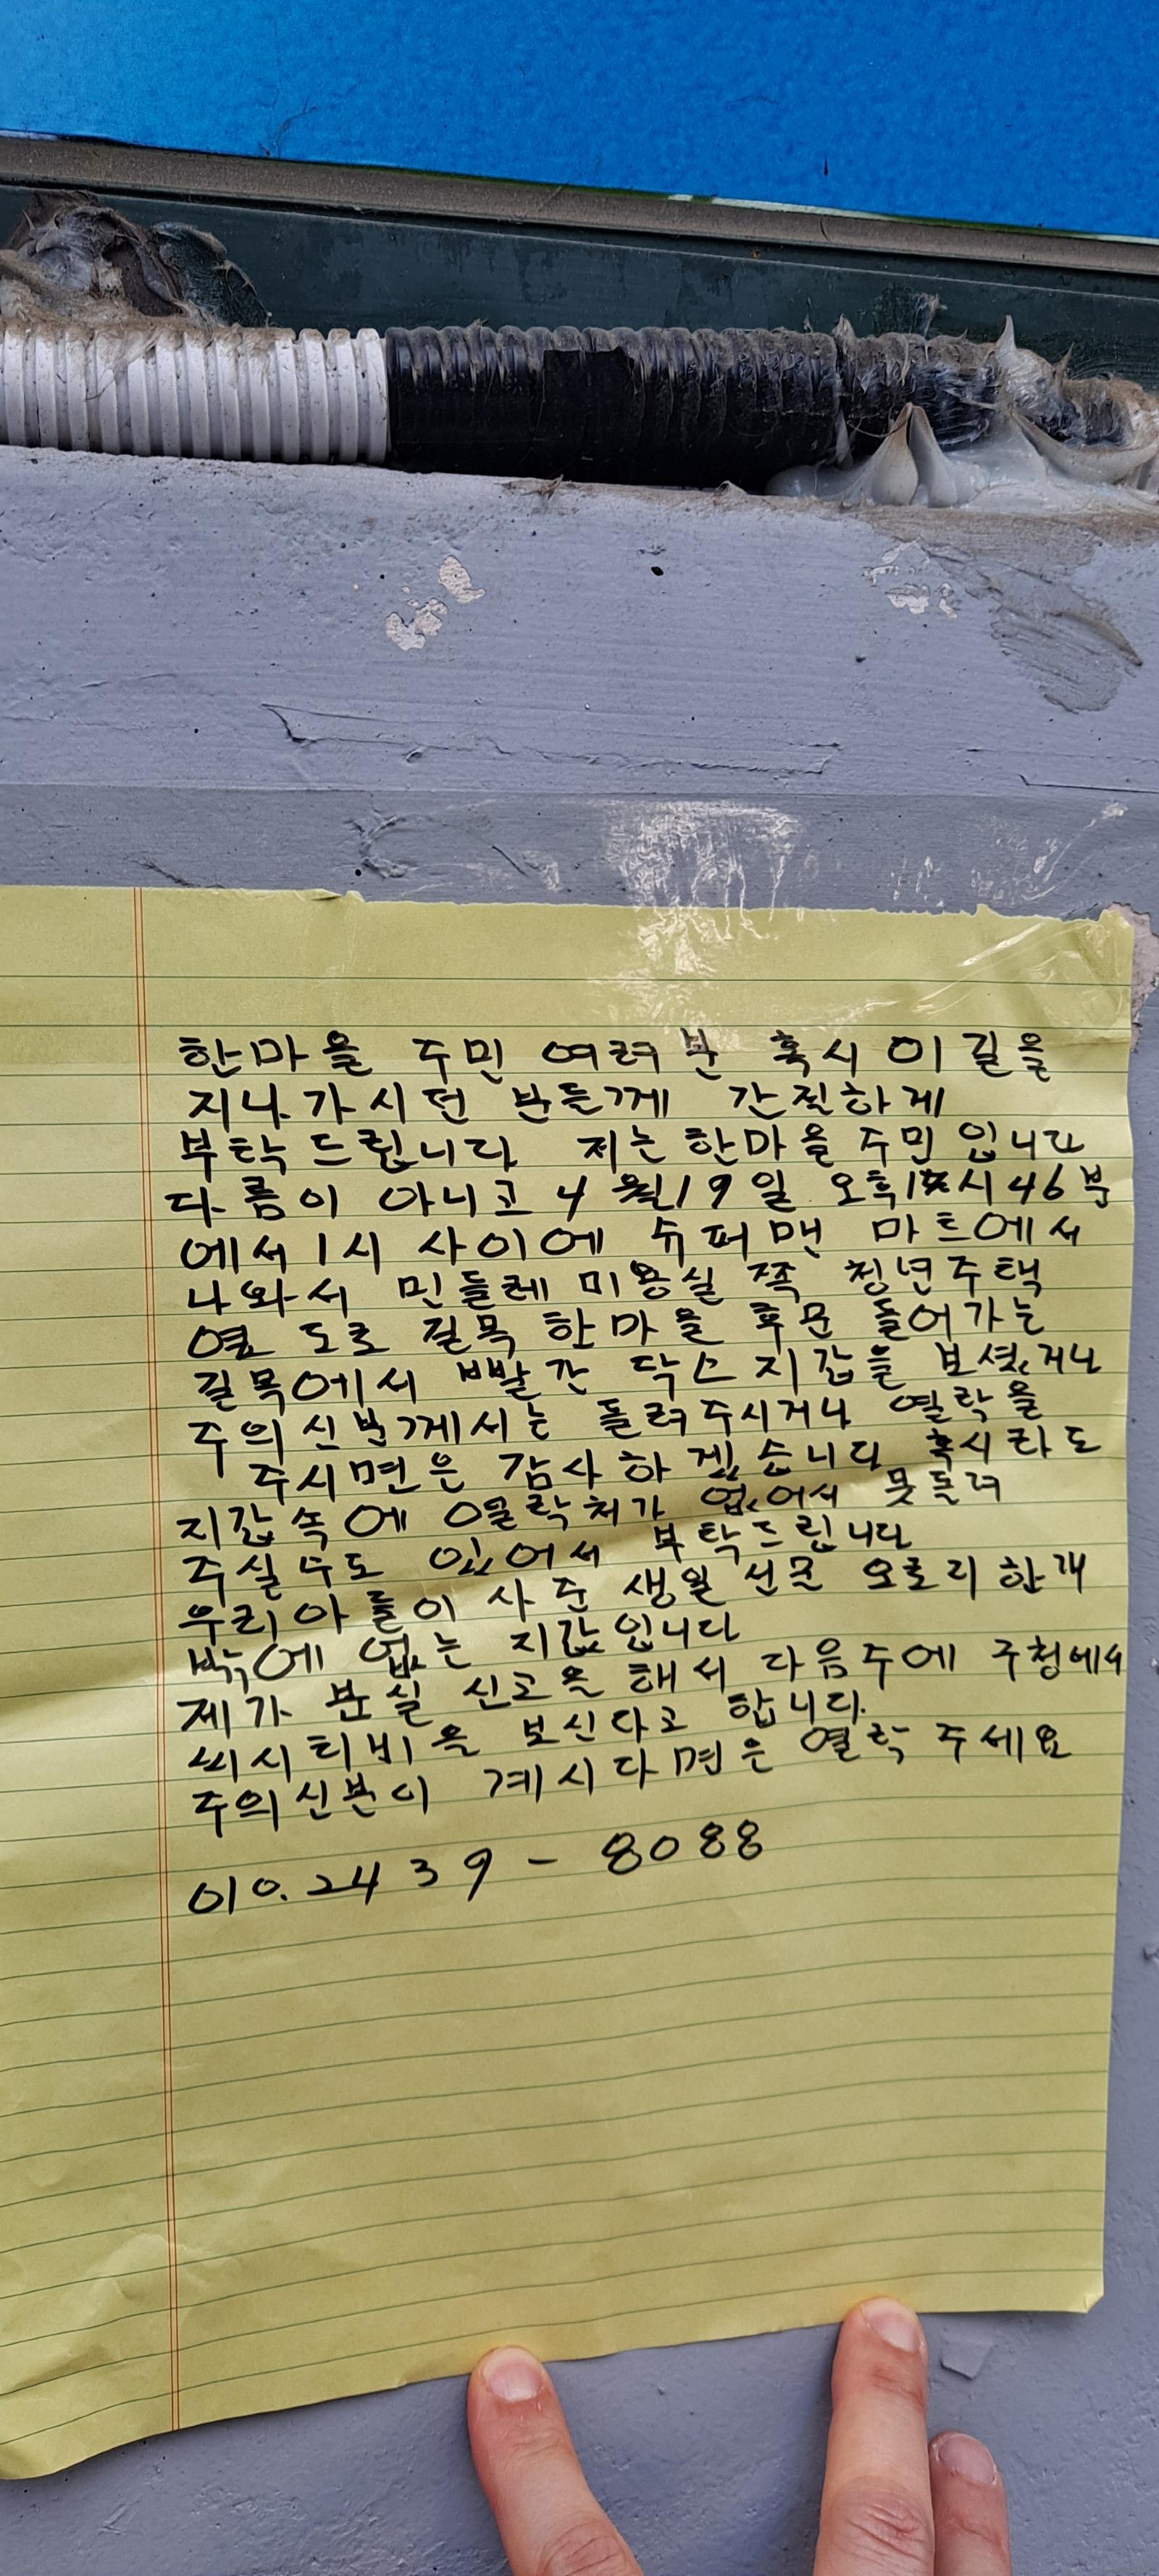 한마을 주민 여러분 혹시 이길을
지나가시던 분들께 간절하게
부탁드립니다 저는 한마을 주민 입니다
다름이 아니고 4월19일 오후1시46분
에서 1시 사이에 슈퍼맨 마트에서
나와서 민들레 미용실 쪽 청년주택
옆 도로 길목 한마을 후문 들어가는
길목에서 빨간 닥스지갑을 보셨거나
주의신분께서는 돌려주시거나 열락을
주시면은 감사하겠습니다 혹시라도
지갑속에 열락처가 없어서 못돌려
주실수도 있어서 부탁드립니다
우리아들이 사준 생일선물 오로지 한개
밖에 없는 지갑입니다
제가 분실 신고을 해서 다음주에 구청에서
씨시티비을 보신다고 합니다.
주의신분이 계시다면은 열락 주세요
010.2439-8088